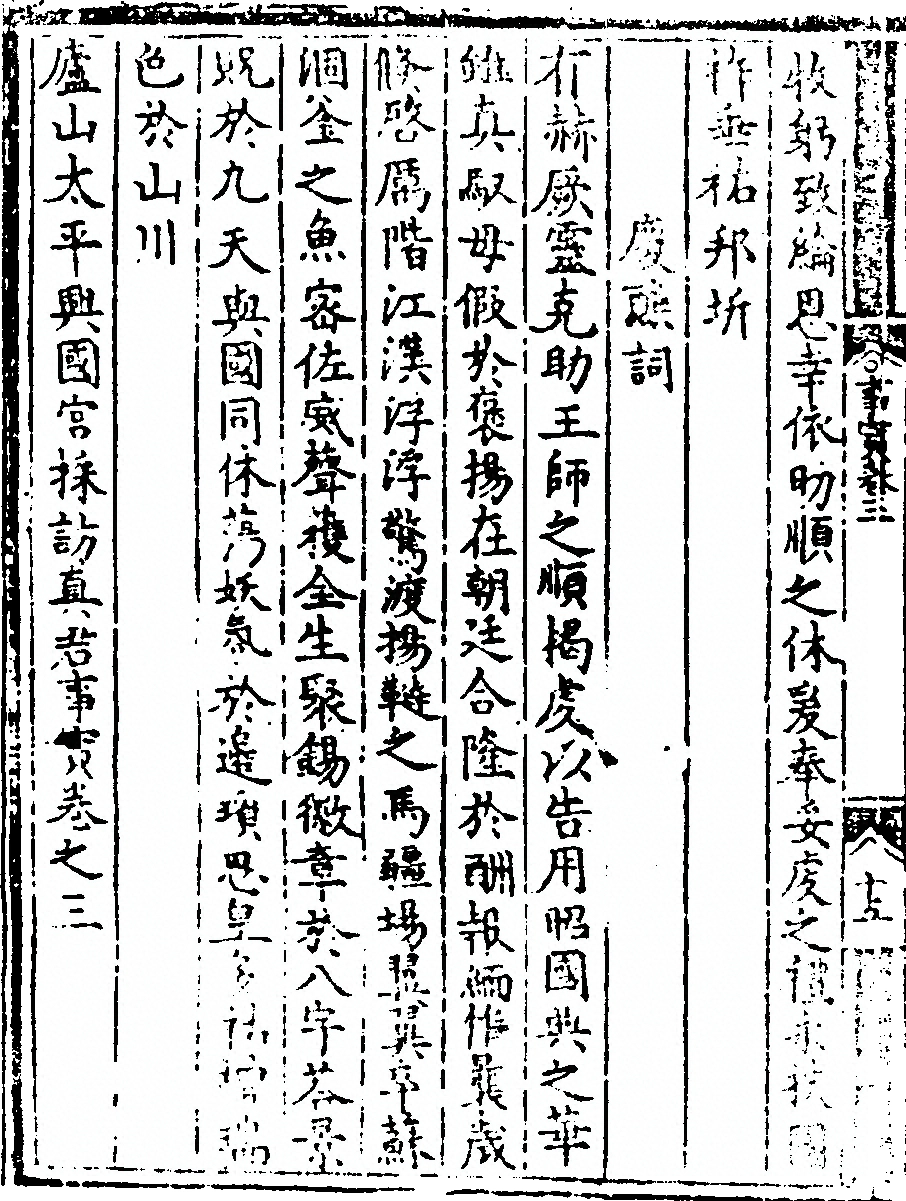 事實卷三
十五
牧躬致綸恩幸依助順之休爰奉妥虔之禮永扶國
祚垂祐邦圻
慶醮詞
有赫厥靈克助王師之順揭虔以告用昭國典之華
雖真馭毋假於褒揚在朝廷合隆於酬報緬惟曩歲
啓厲階江漢浮浮驚渡揚鞭之馬疆場翼翼卒蘇
涸釜之魚密佐威聲獲全生聚錫徽章於八字荅景
貺於九天與國同休蕩妖氛於邊瑣思皇多祐增瑞
色於山川
廬山太平興國宮採訪真君事實卷之三